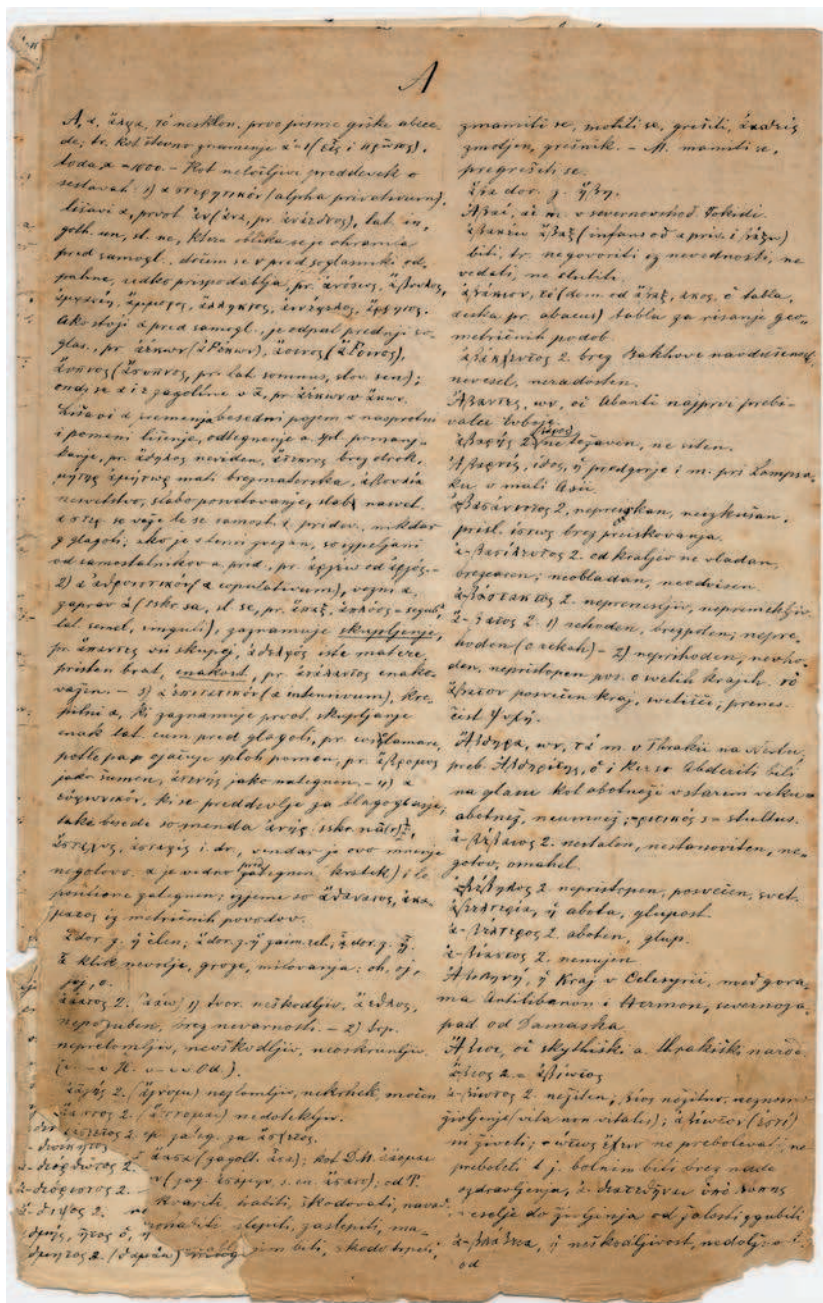 A
A, α. ἄλφα, τό nesklon. prvo pisme grške abece-
de; tr. kot števno znamenje α'=1 (εἷς i πρῶτος),
toda ͵α=1000. – Kot neločljivi preddevek v
sestavah: 1) α στερητικόν (alpha privativum),
lišavi α, prvot. ἀν (ἀνα, pr. ἀνάεδνος), lat. in,
goth. un, sl. ne, ktera oblika se je ohranila
pred samogl., dočim se ν pred soglasniki od-
pahne, redko prispodablja, pr. ἀνόσιος, ἄβουλος,
Ako stoji α pred samogl., je odpal prednji so-
glas., pr. ἀέκων (ἀϜέκων), ἄοινος (ἄϜοινος),
ἄυπνος (ἄσυπνος, pr. lat. somnus, slov. sen);
Lišavi α zremenja besedni pojem v nasprotni
i pomeni lišenje, odtegnenje a. spl. pomanj-
kanje, pr. ἄδηλος neviden, ἄτεκνος brez otrok,
μήτηρ ἀμήτωρ mati brezmaterska, ἀβουλία
nesvetstvo, slabo posvetovanje, slab nasvet.
α στερ. se veže le se samost. i pridev., nikdar
z glagoli; ako je s temi zvezan, so izpeljani
od samostalnikov a. prid., pr. ἀργέω od ἀργός.–
2) α ἀθροιστικόν (α copulativum), vezni α,
zaprav ἁ (sskr. sa, sl. se, pr. ἅπαξ, ἁπλόος =
lat. semel, singuli), zaznamuje skupljenje,
pr. ἅπαντες vsi skupaj, ἀδελφός iste matere,
pristen brat, enakost, pr. ἀτάλαντος enako-
važen. – 3) α ἐπιτατικόν (α intensivum), kre-
pilni α, ki zaznamuje prvot. skupljanje
enak lat. cum pred glagoli, pr. conclamare,
potle pa pojačuje sploh pomen, pr. ἄβρομος
jako šumen, ἀτενής jako nategnen. – 4) α
εὐφωνικόν, ki se preddevlje za blagoglasje,
take besede so menda ἀνήρ (sskr.
ἄσταχυς, ἀσταφίς i dr., vendar je ovo mnenje
negotovo. α je vedno pred zategnen (kratek) i le
pozitione zategnen; izjeme so ἀθάνατος, ἀκά-
ματος iz metričnih povodov.
ἆ klik nevolje, groze, milovanja: oh, oj,
joj, o.
ἀάατος 2. (ἀάω) 1) dvor. neškodljiv,
nepogubен, brez nevarnosti. – 2) trp.
neprelomljiv, neoškodljiv, neoskrunljiv
ἀαγής 2. (ἄγνυμι) nezlomljiv, nekrhek, močen
ἄαπτος 2. (ἅπτομαι) nedotekljiv.
kvariti, habiti, škodovati, navad.
slepiti, zaslepiti, ma-
zmamiti se, motiti se, grešiti, ἀασθείς
zmotjen, grešnik. – M. mamiti se,
pregrešiti se.
ἅβα dor. z. ἥβη.
Ἄβαι, αἱ m. v severovshod. Fokidi.
ἀβακέω ἄβαξ (infans od α priv. i βάζω)
biti, tr. negovoriti iz nevednosti, ne
vedeti, ne slutiti.
ἀβάκιον, τό (dem. od ἄβαξ, ακος, ὁ tabla,
deska pr. abacus) tabla za risanje geo-
metričnih podob.
ἀβάκχευτος 2. brez Bakhove navdušenosti,
nevesel, neradosten.
Ἄβαντες, ων, οἱ Abanti najprvi prebi-
valci Euboje.
ἀβαρής 2. (βάρος) ne težaven, ne siten.
Ἀβαρνίς, ίδος, ἡ predgorje i m. pri Lampsa-
ku v mali Asii.
ἀβασάνιστος 2. nepreiskan, neizkušan,
prisl. ίστως brez preiskovanja.
ἀ-βασίλευτος 2. od kraljev ne vladan,
brezcaren; neobladan, neodvisen.
ἀ-βάστακτος 2. neprenesljiv, nepremekljiv.
ἄ-βατος 2. 1) nehoden, brezpoten; nepre-
hoden (o rekah) – 2) neprihoden, nevho-
den, nepristopen pos. o svetih krajih. τὸ
ἄβατον posvečen kraj, svetišče; prenes.
čist ψυχή.
Ἄβδηρα, ων, τά m. v Thrakii na Nestu,
preb. Ἀβδηρίτης, ὁ i ker so Abderiti bili
na glasu kot abotneži v starem veku =
abotnež, neumnež; -ριτικός 3 = stultus.
ἀ-βέβαιος 2. nestalen, nestanoviten, ne-
gotov, omahel.
ἀ-βέβηλος 2. nepristopen, posvečen, svet.
ἀβελτερία, ἡ abota, glupost.
ἀ-βέλτερος 2. aboten, glup.
ἀ-βίαστος 2. nenujen
Ἀβιληνή, ἡ kraj v Celesyrii, med gora-
ma Antilibanon i Hermon, severnoza-
pad od Damaska.
Ἄβιοι, οἱ skythiški a. thrakiški narod.
ἄβιος 2. = ἀβίωτος
ἀ-βίωτος 2. neživlen, βίος
življenje (vita non vitalis); ἀβίωτον (ἐστί)
ni živeti; -ώτως ἔχειν ne prebolevati, ne
preboleti t. j. bolnim biti brez nade
ozdravljenja,
veselje do življenja od žalosti zgubiti
ἀ-βλάβεια, ἡ neškodljivost,
od